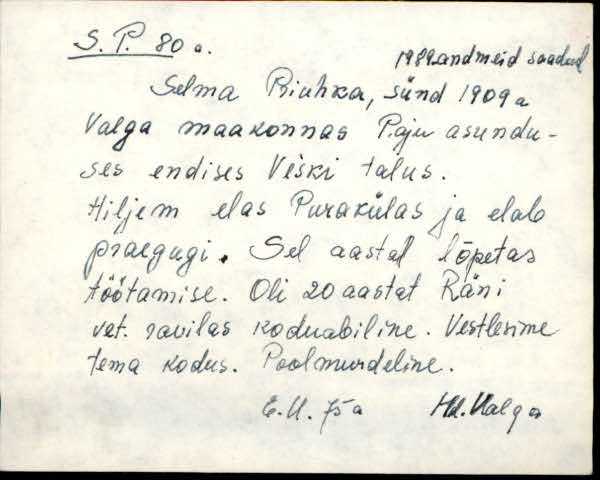 S. P. 80 a.
1989 andmeid saadud
Selma Riuhka, sünd 1909 a
Valga maakonnas Paju asundu-
ses endises Veski talus.
Hiljem elas Purakülas ja elab
praegugi. Sel aastal lõpetas
töötamise. Oli 20 aastat Räni
vet. ravilas koduabiline. Vestlesime
tema kodus. Poolmurdeline.
E. U. 75 a